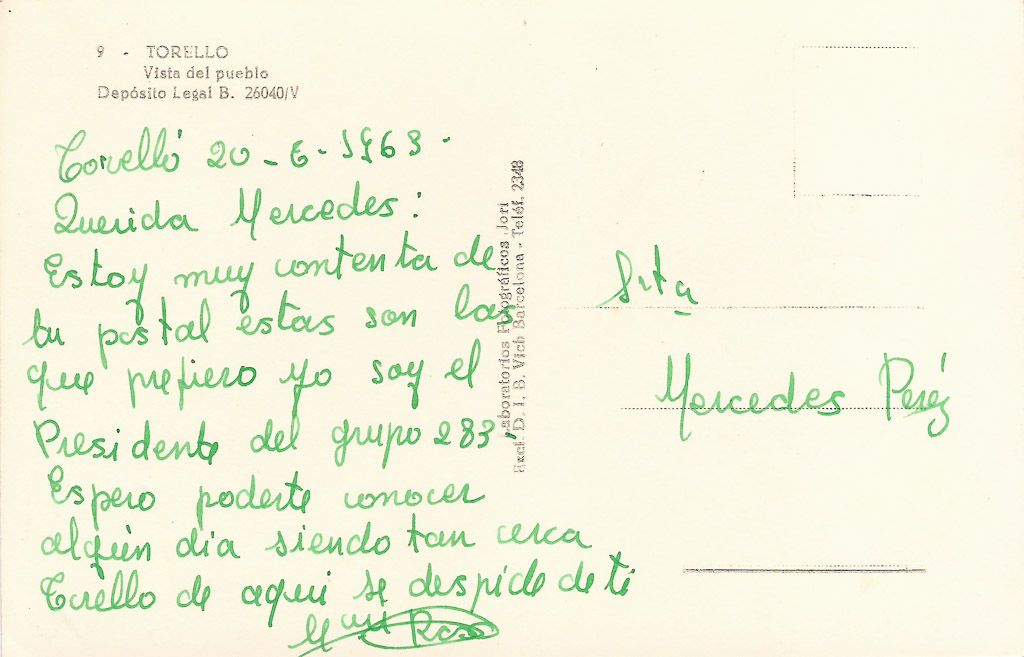 9 - TORELLO
Vista del pueblo
Depósito Legal B. 26040/V
Torelló 20-6-1963.
Querida Mercedes:
Estoy muy contenta de
tu postal estas son las
que prefiero yo soy el
Presidente del grupo 283.
Espero poderte conocer
algún dia siendo tan cerca
Torello de aqui se despide de ti
Laboratorios Fotográficos Jori
Excl. D. I. B. Vich Barcelona - Teléf. 2348
Srta
Mercedes Peréz